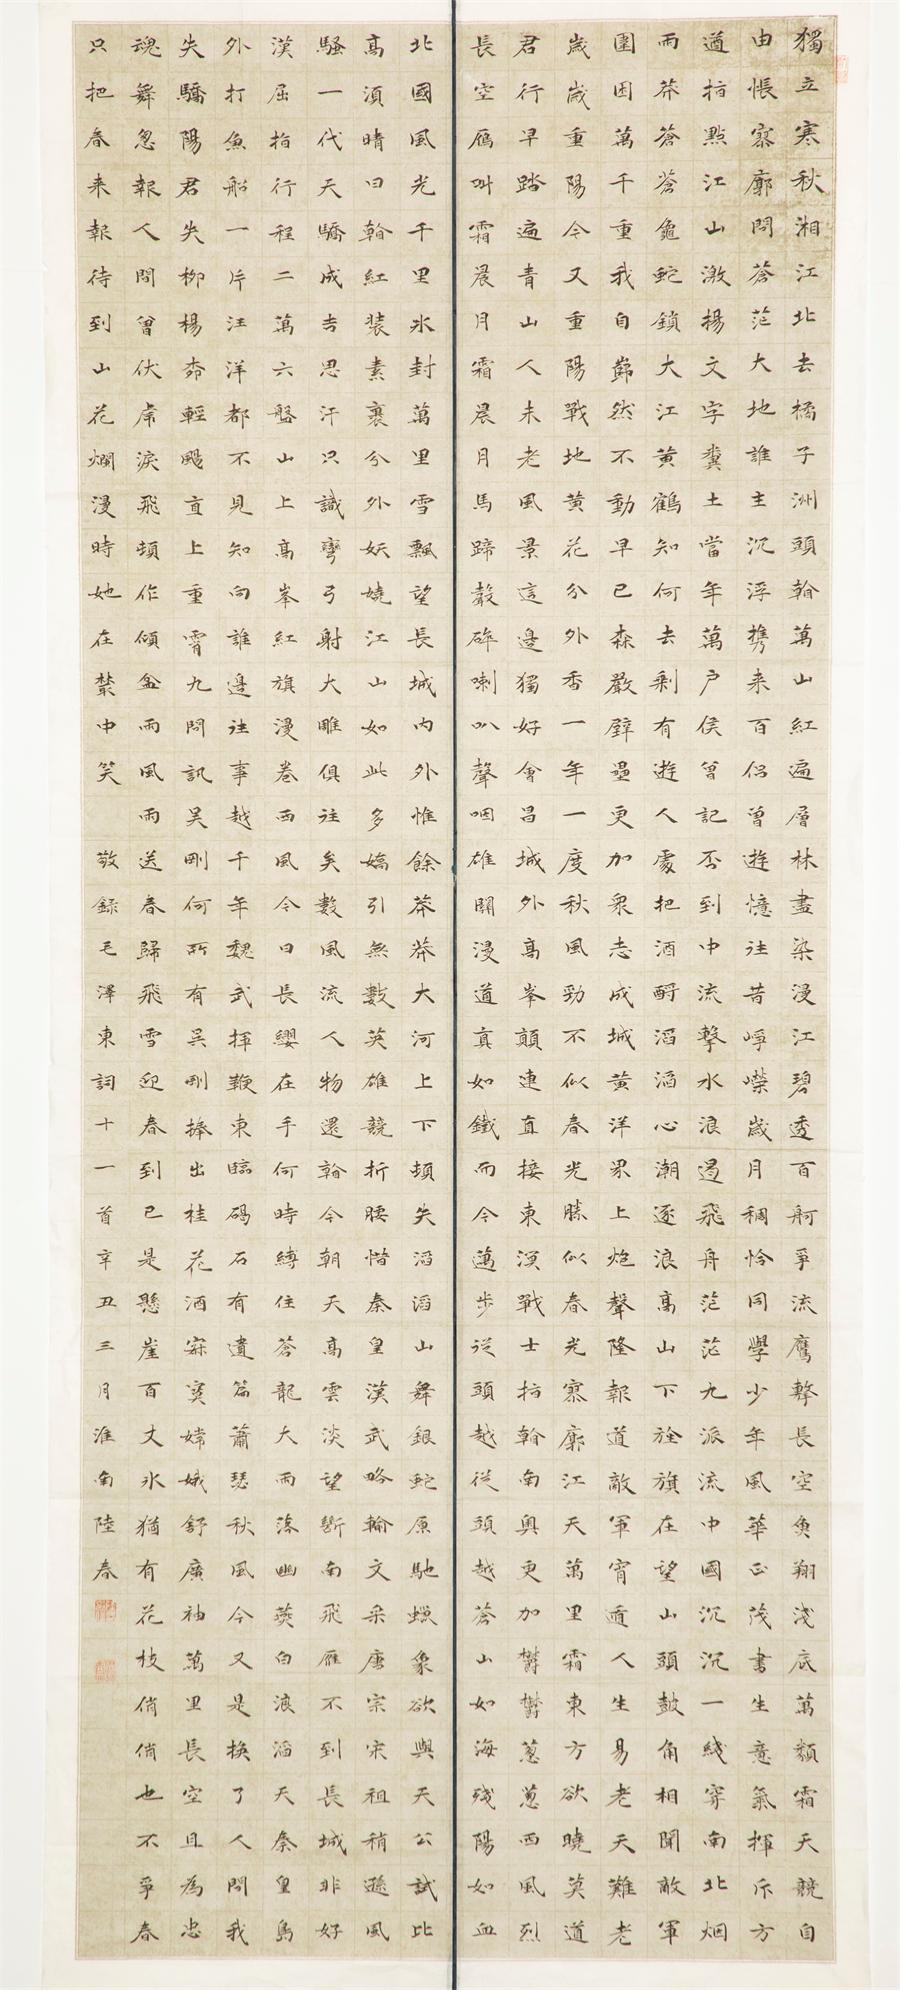 獨立寒秋湘江北去橘子洲頭看萬山紅遍層林盡染漫江碧透百舸爭流鷹擊長空魚翔淺底萬類霜天競自
由悵寥廓問蒼茫大地誰主沉浮携来百侶曾遊憶往昔崢嶸歲月稠恰同學少年風華正茂書生意氣揮斥方
遒指點江山激揚文字糞土當年萬户侯曾記否到中流擊水浪遏飛舟茫茫九派流中國沉沉一綫穿南北烟
雨莽蒼蒼龜蛇鎖大江黄鶴知何去剩有遊人處把酒酹滔滔心潮逐浪高山下旌旗在望山頭鼓角相聞敵軍
圍困萬千重我自巋然不動早已森嚴壁壘更加衆志成城黄洋界上炮聲隆報道敵軍宵遁人生易老天難老
歲歲重陽今又重陽戰地黄花分外香一年一度秋風勁不似春光勝似春光寥廓江天萬里霜東方欲曉莫道
君行早踏遍青山人未老風景這邊獨好會昌城外高峯顛連直接東溟戰士指看南粤更加鬱鬱蔥蔥西風烈
長空雁叫霜晨月霜晨月馬蹄聲碎喇叭聲咽雄關漫道真如鐵而今邁步從頭越從頭越蒼山如海殘陽如血
北國風光千里冰封萬里雪飄望長城内外惟餘莽莽大河上下頓失滔滔山舞銀蛇原馳蠟象欲與天公試比
高須晴日看紅裝素裹分外妖嬈江山如此多嬌引無數英雄競折腰惜秦皇漢武略輸文采唐宗宋祖稍遜風
騷一代天驕成吉思汗只識彎弓射大雕俱往矣數風流人物還看今朝天高雲淡望斷南飛雁不到長城非好
漢屈指行程二萬六盤山上高峯紅旗漫卷西風今日長纓在手何時縛住蒼龍大雨落幽燕白浪滔天秦皇島
外打魚船一片汪洋都不見知向誰邊往事越千年魏武揮鞭東臨碣石有遺篇蕭瑟秋風今又是換了人間我
失驕陽君失柳楊柳輕颺直上重霄九問訊吴剛何所有吴剛捧出桂花酒寂寞嫦娥舒廣袖萬里長空且為忠
魂舞忽報人間曾伏虎淚飛頓作傾盆雨風雨送春歸飛雪迎春到已是懸崖百丈冰猶有花枝俏俏也不爭春
只把春来報待到山花爛漫時她在叢中笑 敬録毛澤東詞十一首辛丑三月淮南陸春